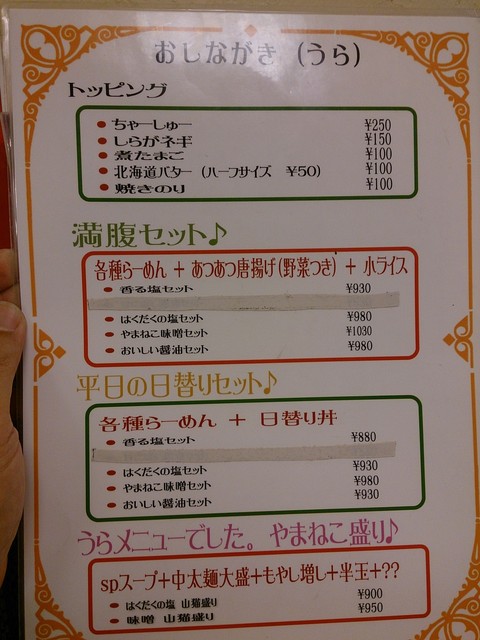 おしながき (うら)
トッピング
● ちゃーしゅー ¥250
● しらがネギ ¥150
● 煮たまご ¥100
● 北海道バター (ハーフサイズ ¥50) ¥100
● 焼きのり ¥100
満腹セット♪
各種らーめん + あつあつ唐揚げ(野菜つき) + 小ライス
● 香る塩セット ¥930
● はくだくの塩セット ¥980
● やまねこ味噌セット ¥1030
● おいしい醤油セット ¥980
平日の日替りセット♪
各種らーめん + 日替り丼
● 香る塩セット ¥880
● はくだくの塩セット ¥930
● やまねこ味噌セット ¥980
● おいしい醤油セット ¥930
うらメニューでした。やまねこ盛り♪
spスープ+中太麺大盛+もやし増し+半玉+??
● はくだくの塩 山猫盛り ¥900
● 味噌 山猫盛り ¥950